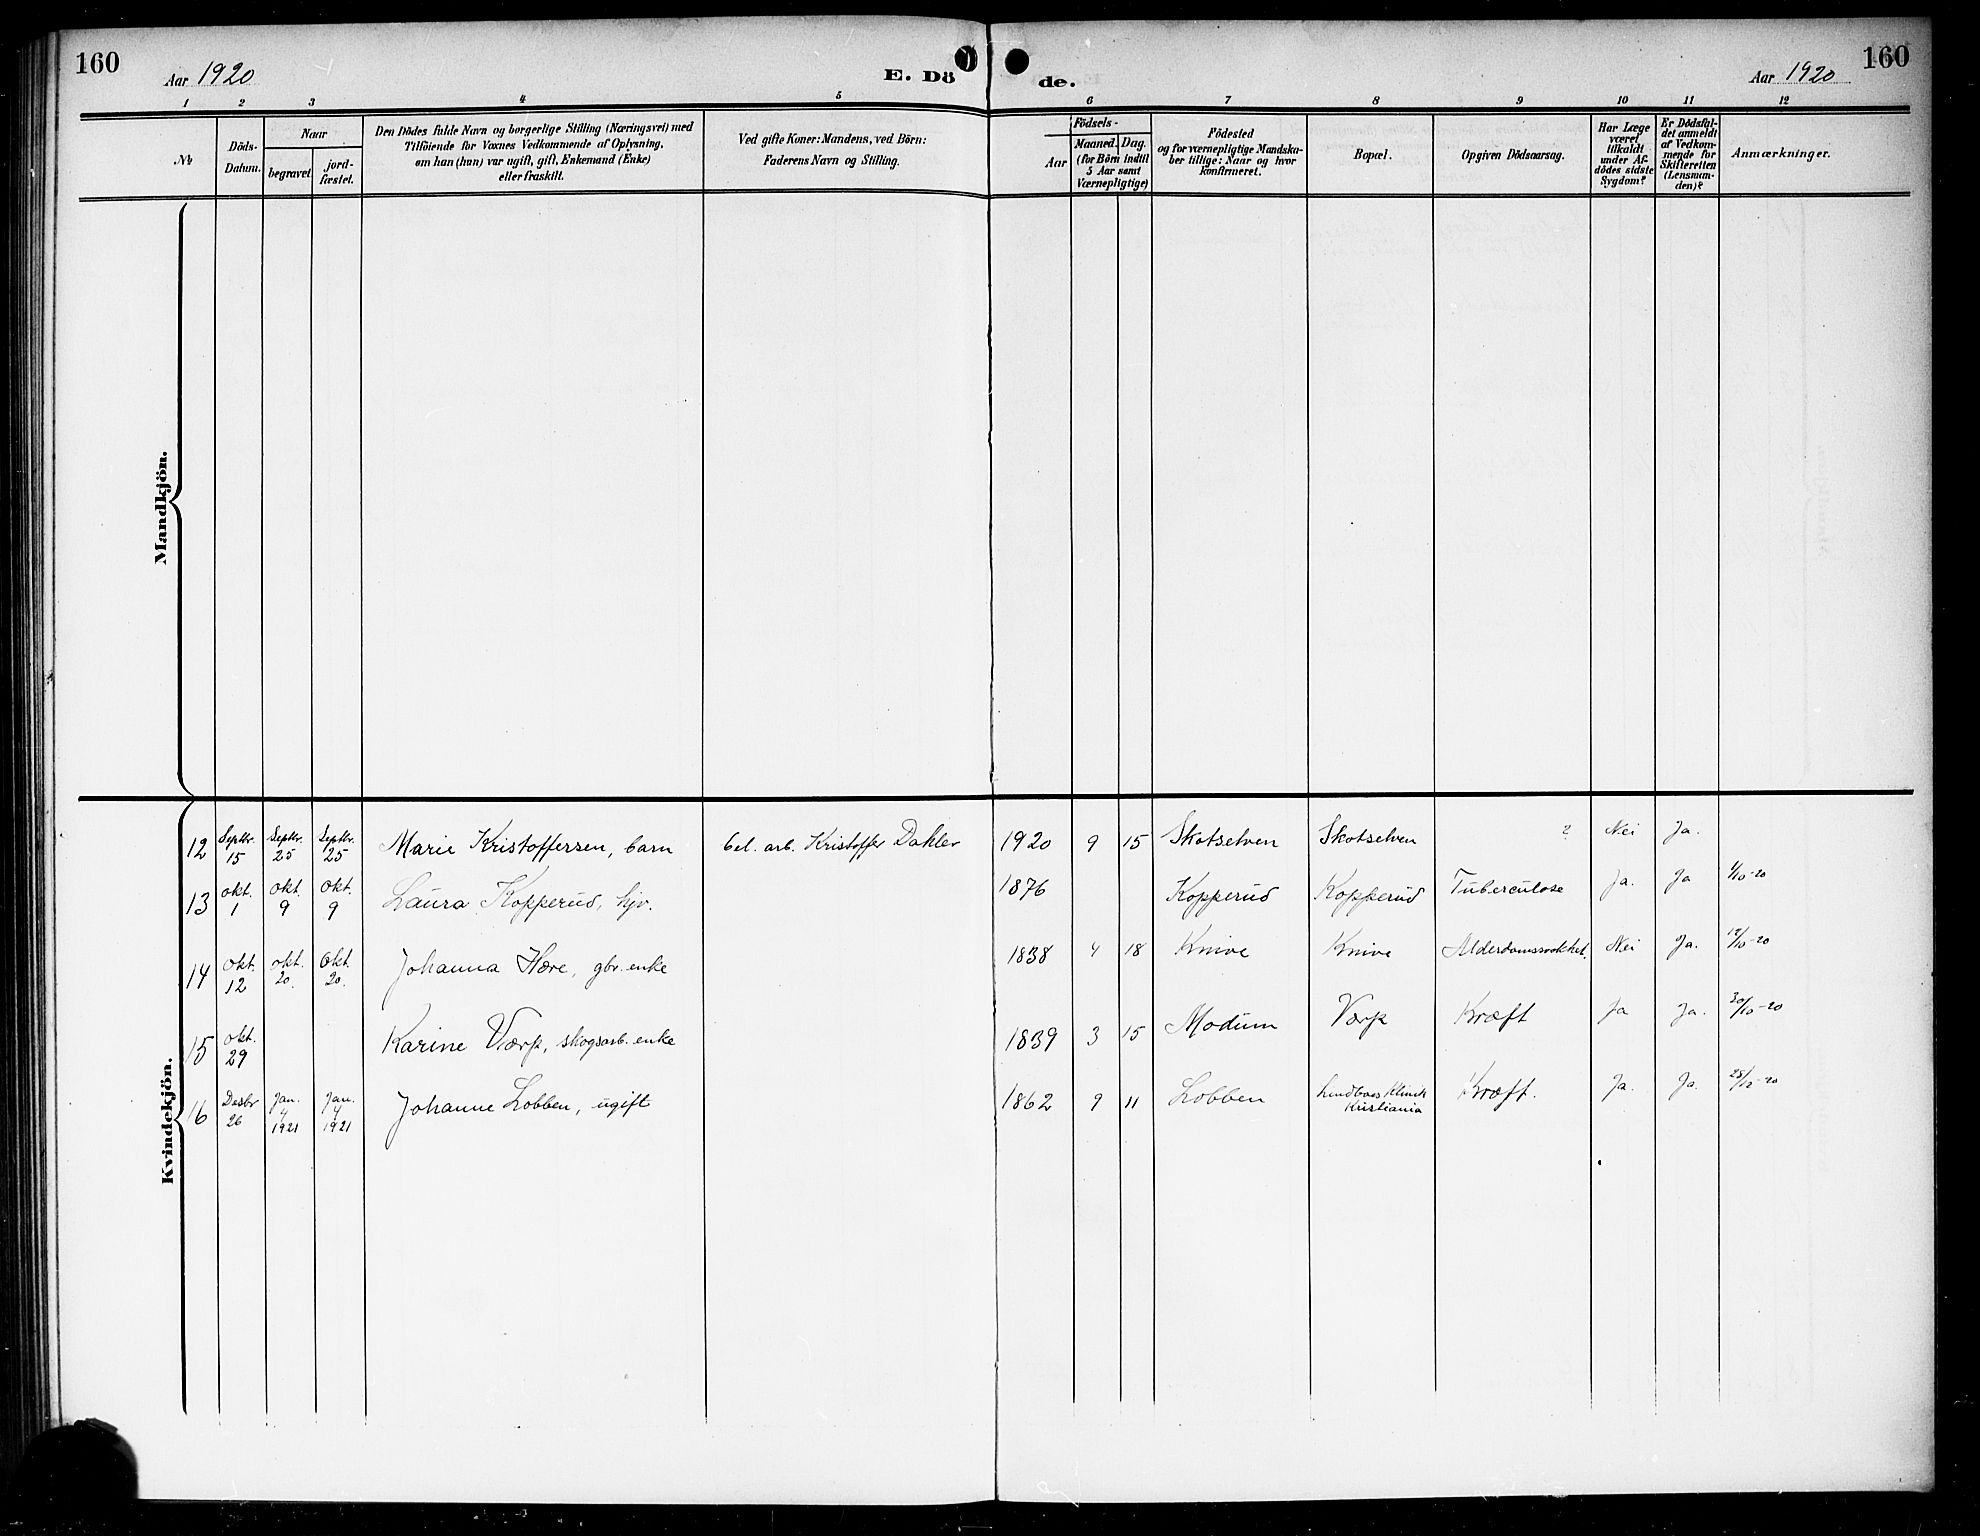 160
Aar 1920
E. Döde.
Aar 1920
160
1 2 3 4 5 6 7 8 9 10 11 12
№
Döds-
Datum.
Naar
begravet
jord-
fæstet.
Den Dödes fulde Navn og borgerlige Stilling (Næringsvei) med
Tilföiende for Voxnes Vedkommende af Oplysning,
om han (hun) var ugift, gift, Enkemand (Enke)
eller fraskilt.
Ved gifte Koner: Mandens, ved Börn:
Faderens Navn og Stilling.
Födsels-
Aar
Maaned. Dag.
(for Börn indtil
5 Aar samt
Værnepligtige)
Födested
og for værnepligtige Mandska-
ber tillige: Naar og hvor
konfirmeret.
Bopæl.
Opgiven Dödsaarsag.
Har Læge
været
tilkaldt
under Af-
dödes sidste
Sygdom?
Er Dödsfal-
det anmeldt
af Vedkom-
mende for
Skifteretten
(Lensman-
den)?
Anmærkninger.
Mandkjön.
Kvindekjön.
12 Septbr. 15 Septbr. 25 Septbr. 25 Marie Kristoffersen, barn bel. arb. Kristoffer Dahler 1920 9 15 Skotselven Skotselven ? Nei Ja.
13 Okt. 1 Okt. 9 Okt. 9 Laura Kopperud, hjv. 1876 Kopperud Kopperud Tuberculose Ja. Ja 4/10-20
14 Okt. 12 Okt. 20. Okt. 20. Johanna Hære, gbr. enke 1838 4 18 Knive Knive Alderdomssvakhet. Nei Ja. 12/10-20
15 Okt. 29 Karine Værp, skogsarb. enke 1839 3 15 Modum Værp Kræft Ja Ja. 30/10-20
16 Desbr 26 Jan. 4 1921 Jan. 4 1921 Johanne Lobben, ugift 1862 9 11 Lobben Klinik Kristiania Kræft. Ja. Ja. 28/12-20